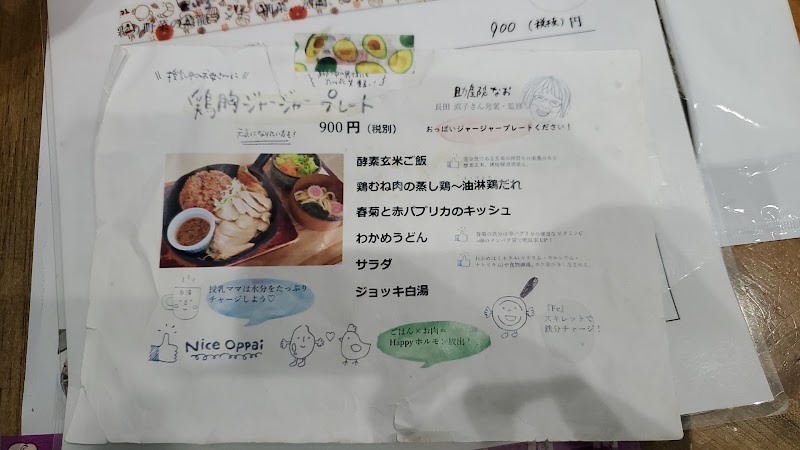 900 (税抜)円
鶏胸ジャージャープレート
900円(税別)
元気になりたい方も!
助産院なお
長田 直子さん発案・監修
おっぱいジャージャープレートください!
酵素玄米ご飯
鶏むね肉の蒸し鶏〜油淋鶏だれ
春菊と赤パプリカのキッシュ
わかめうどん
サラダ
ジョッキ白湯
授乳ママは水分をたっぷり
チャージしよう♡
白湯
Nice Oppai
ごはん×お肉=
Happyホルモン放出!
『Fe』
スキレットで
鉄分チャージ!